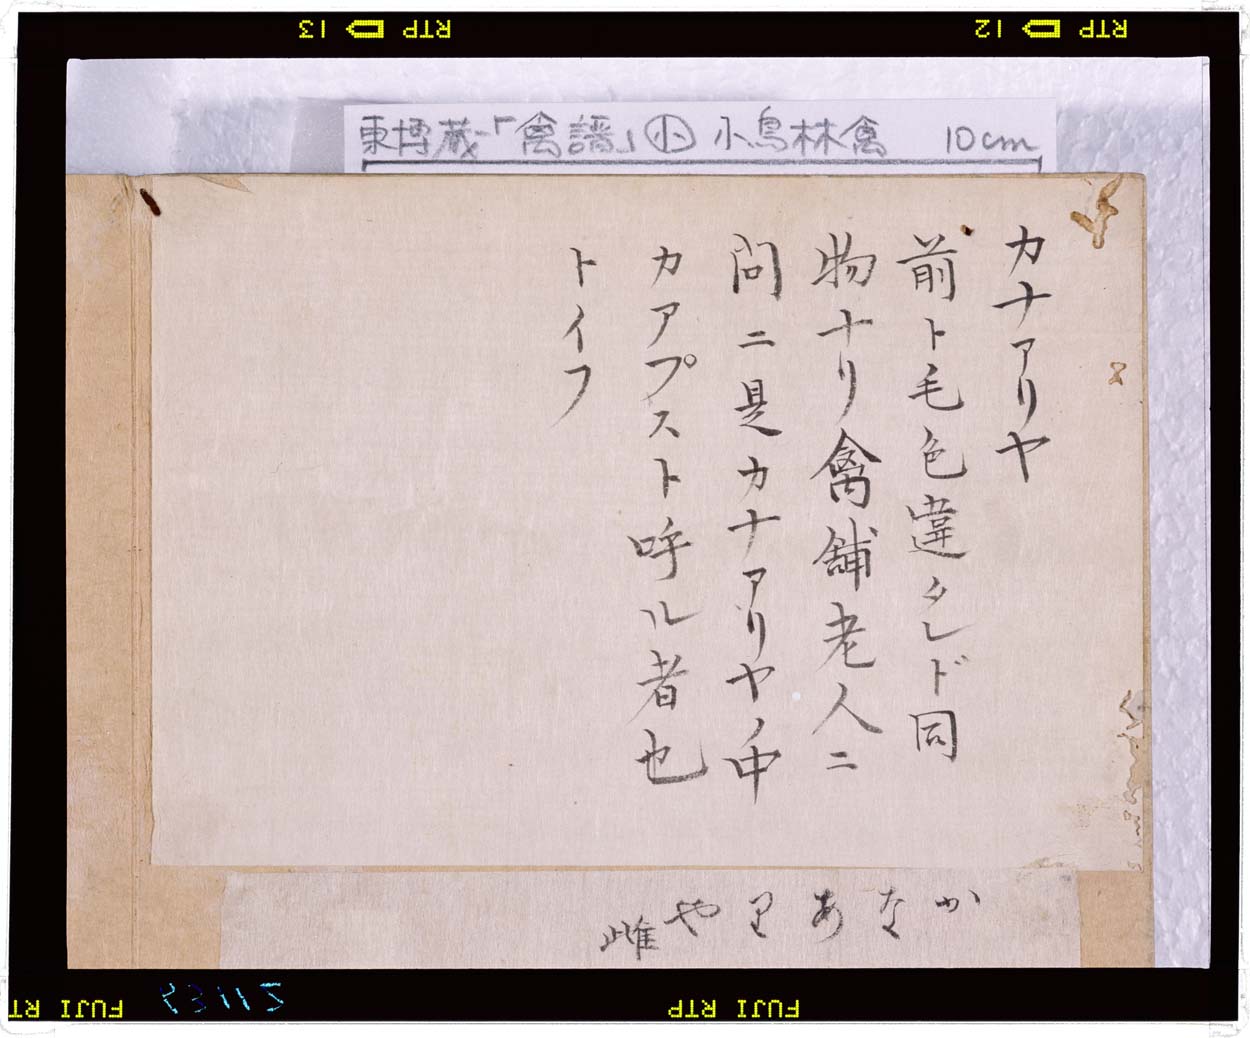 RTP 13
RTP 12
東博蔵「禽譜」小 小鳥林禽 10cm
カナアリヤ
前ト毛色違タレド同
物ナリ禽舗老人ニ
問ニ是カナアリヤノ中
カアプスト呼ル者也
トイフ
かなありや雌
FUJI RTP
FUJI RT